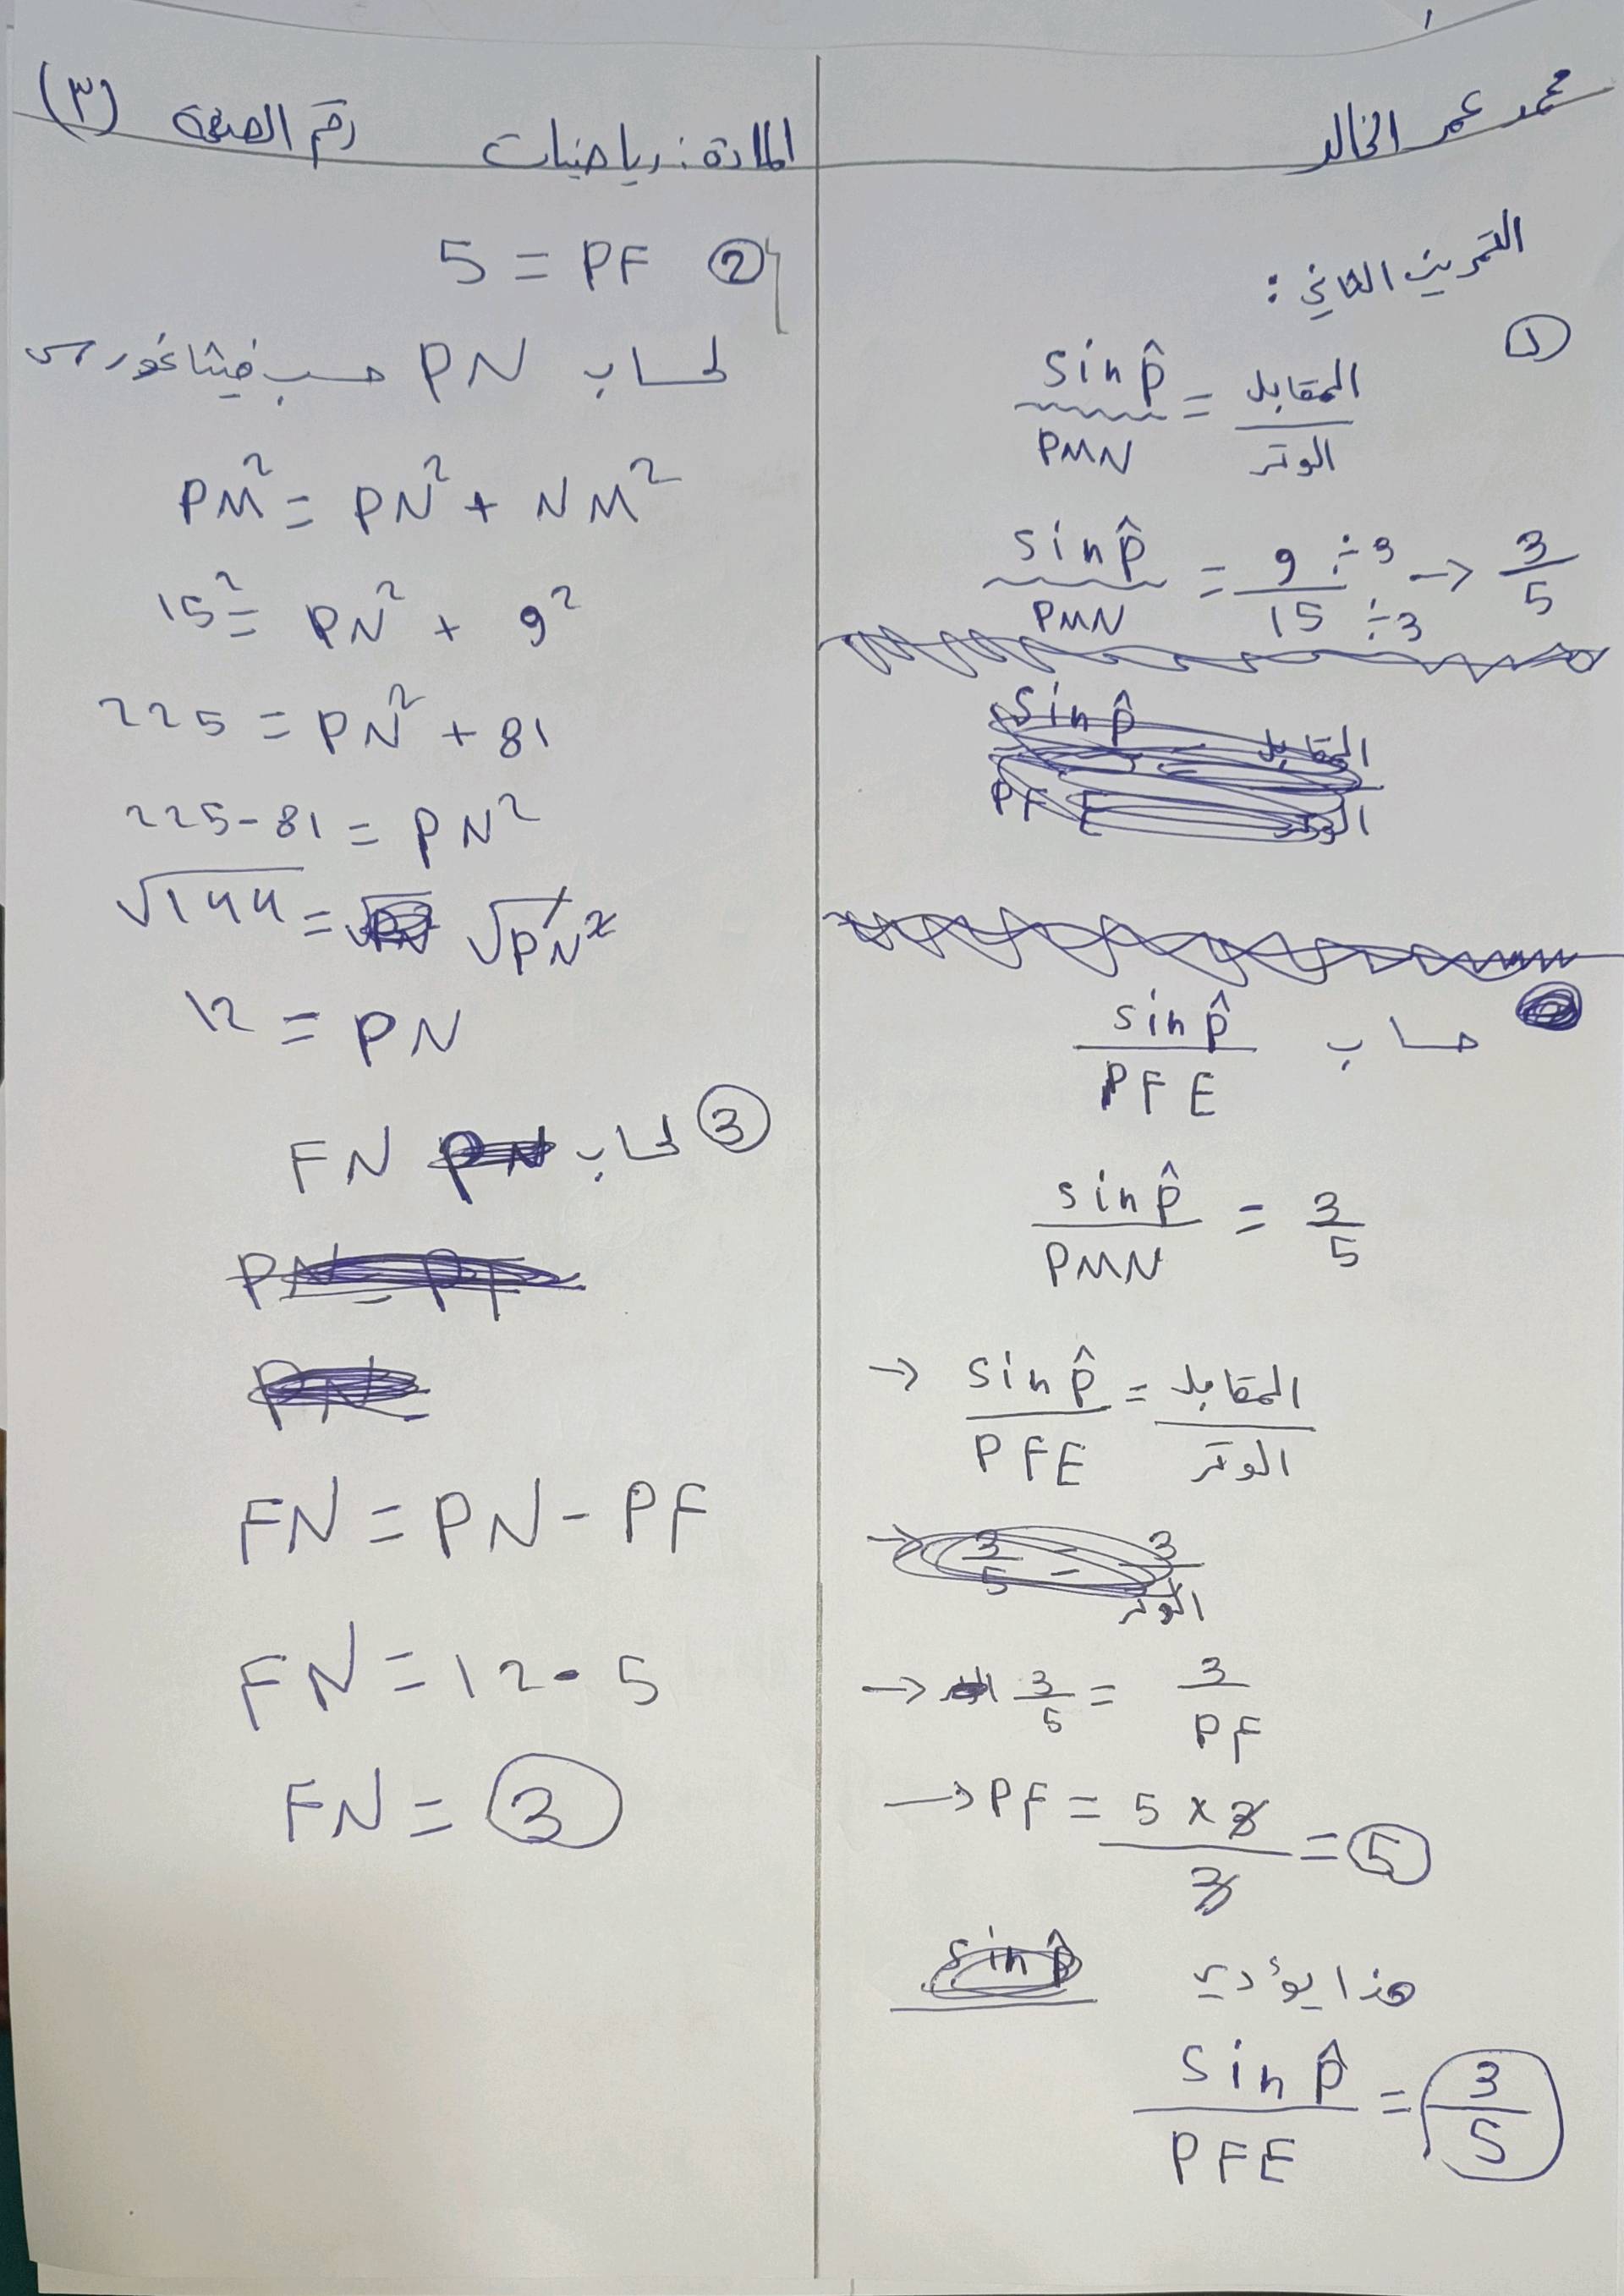 محمد عمر الخالد
المادة: رياضيات رقم الصفحة (٣)
التمرين الثاني:
①
sin p̂ / PMN = المقابل / الوتر
sin p̂ / PMN = 9 ÷3 / 15 ÷3 → 3/5
sin p̂ المقابل
PFE الوتر
حساب sin p̂ / PFE
sin p̂ / PMN = 3/5
→ sin p̂ / PFE = المقابل / الوتر
→ 3/5 = 3 / الوتر
→ 3/5 = 3 / PF
→ PF = 5 × 3 / 3 = 5
هذا يؤدي sin p̂
sin p̂ / PFE = 3/5
② 5 = PF
لحساب PN حسب فيثاغورس
PM² = PN² + NM²
15² = PN² + 9²
225 = PN² + 81
225-81 = PN²
√144 = √PN √PN²
12 = PN
③ لحساب PN FN
PN - PF
PN
FN = PN - PF
FN = 12 - 5
FN = 3